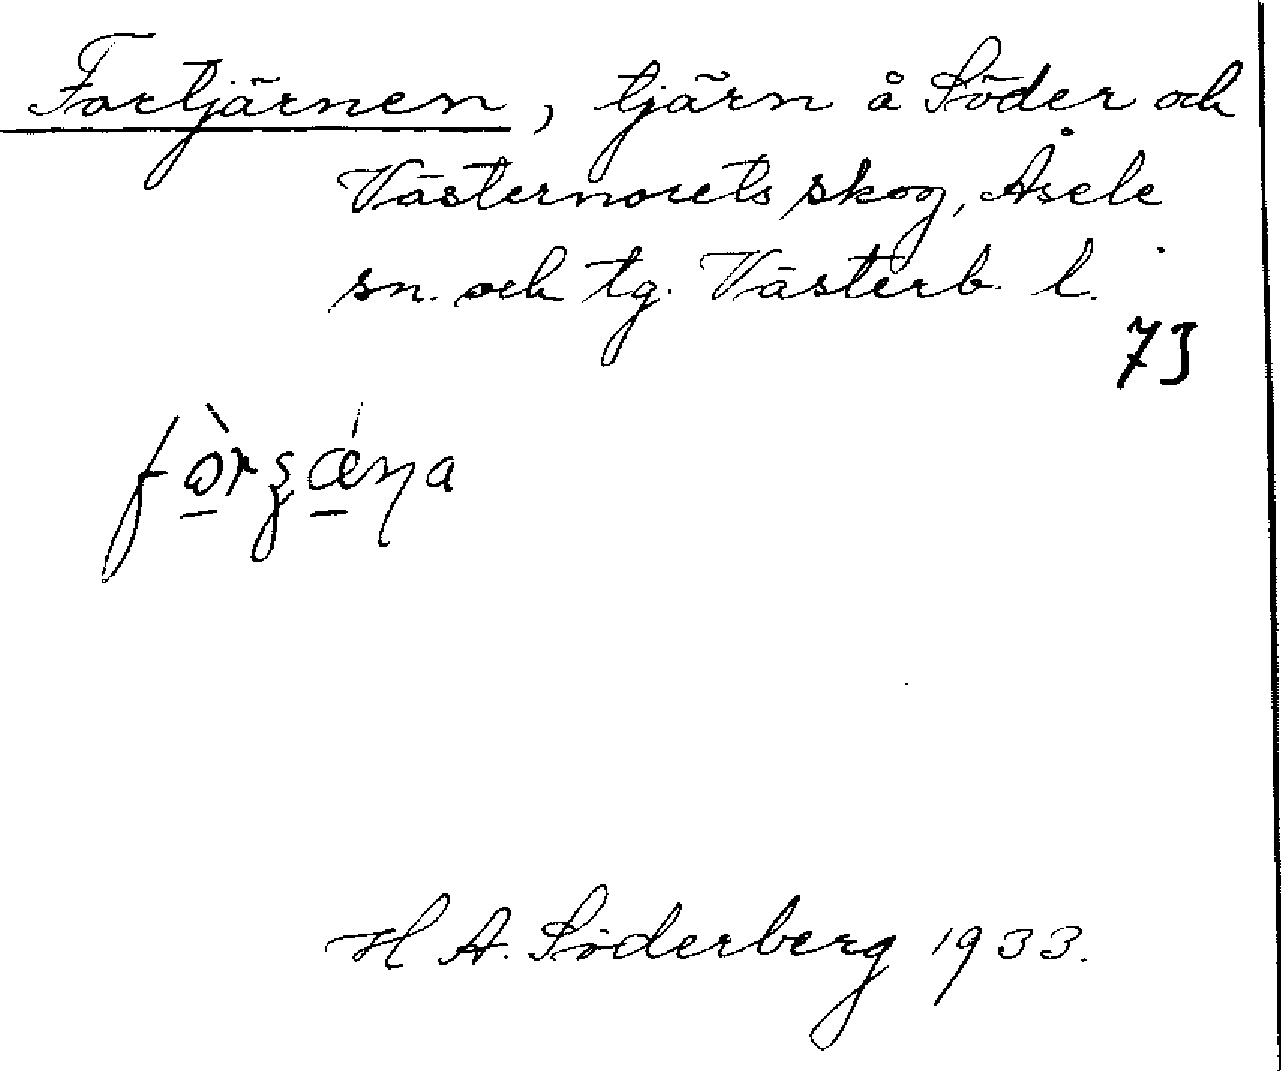 Fortjärnen, tjärn å Söder och
Västernorets skog, Åsele
sn. och tg. Västerb. l.
73
H A. Söderberg 1933.